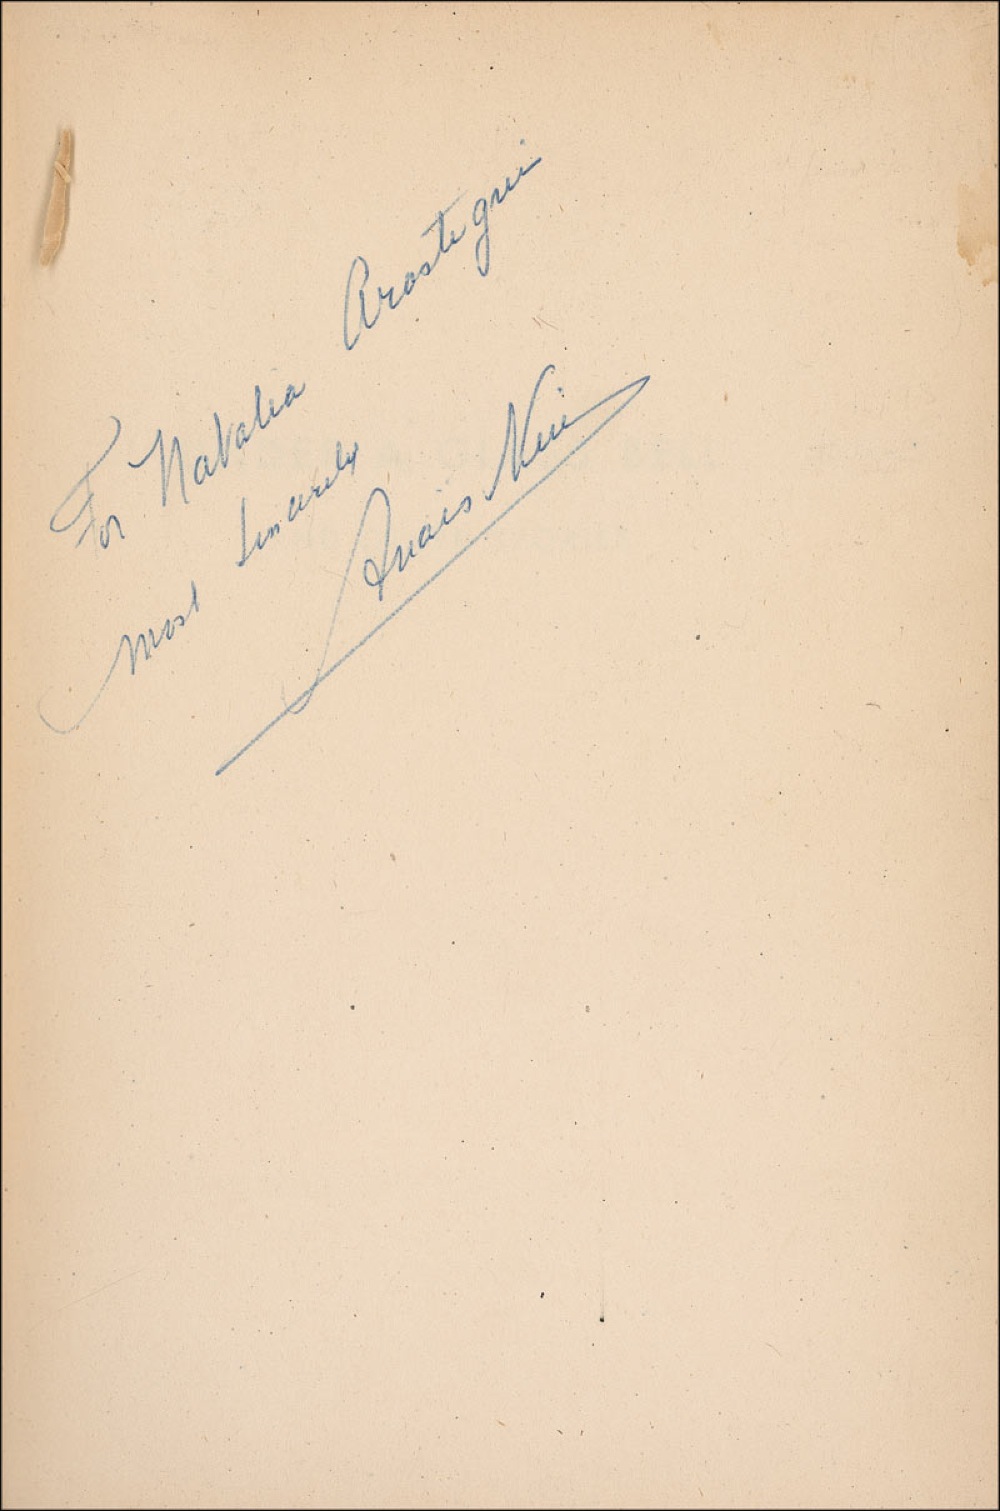 For Natalia Arostegui
most sincerely
Anais Nin